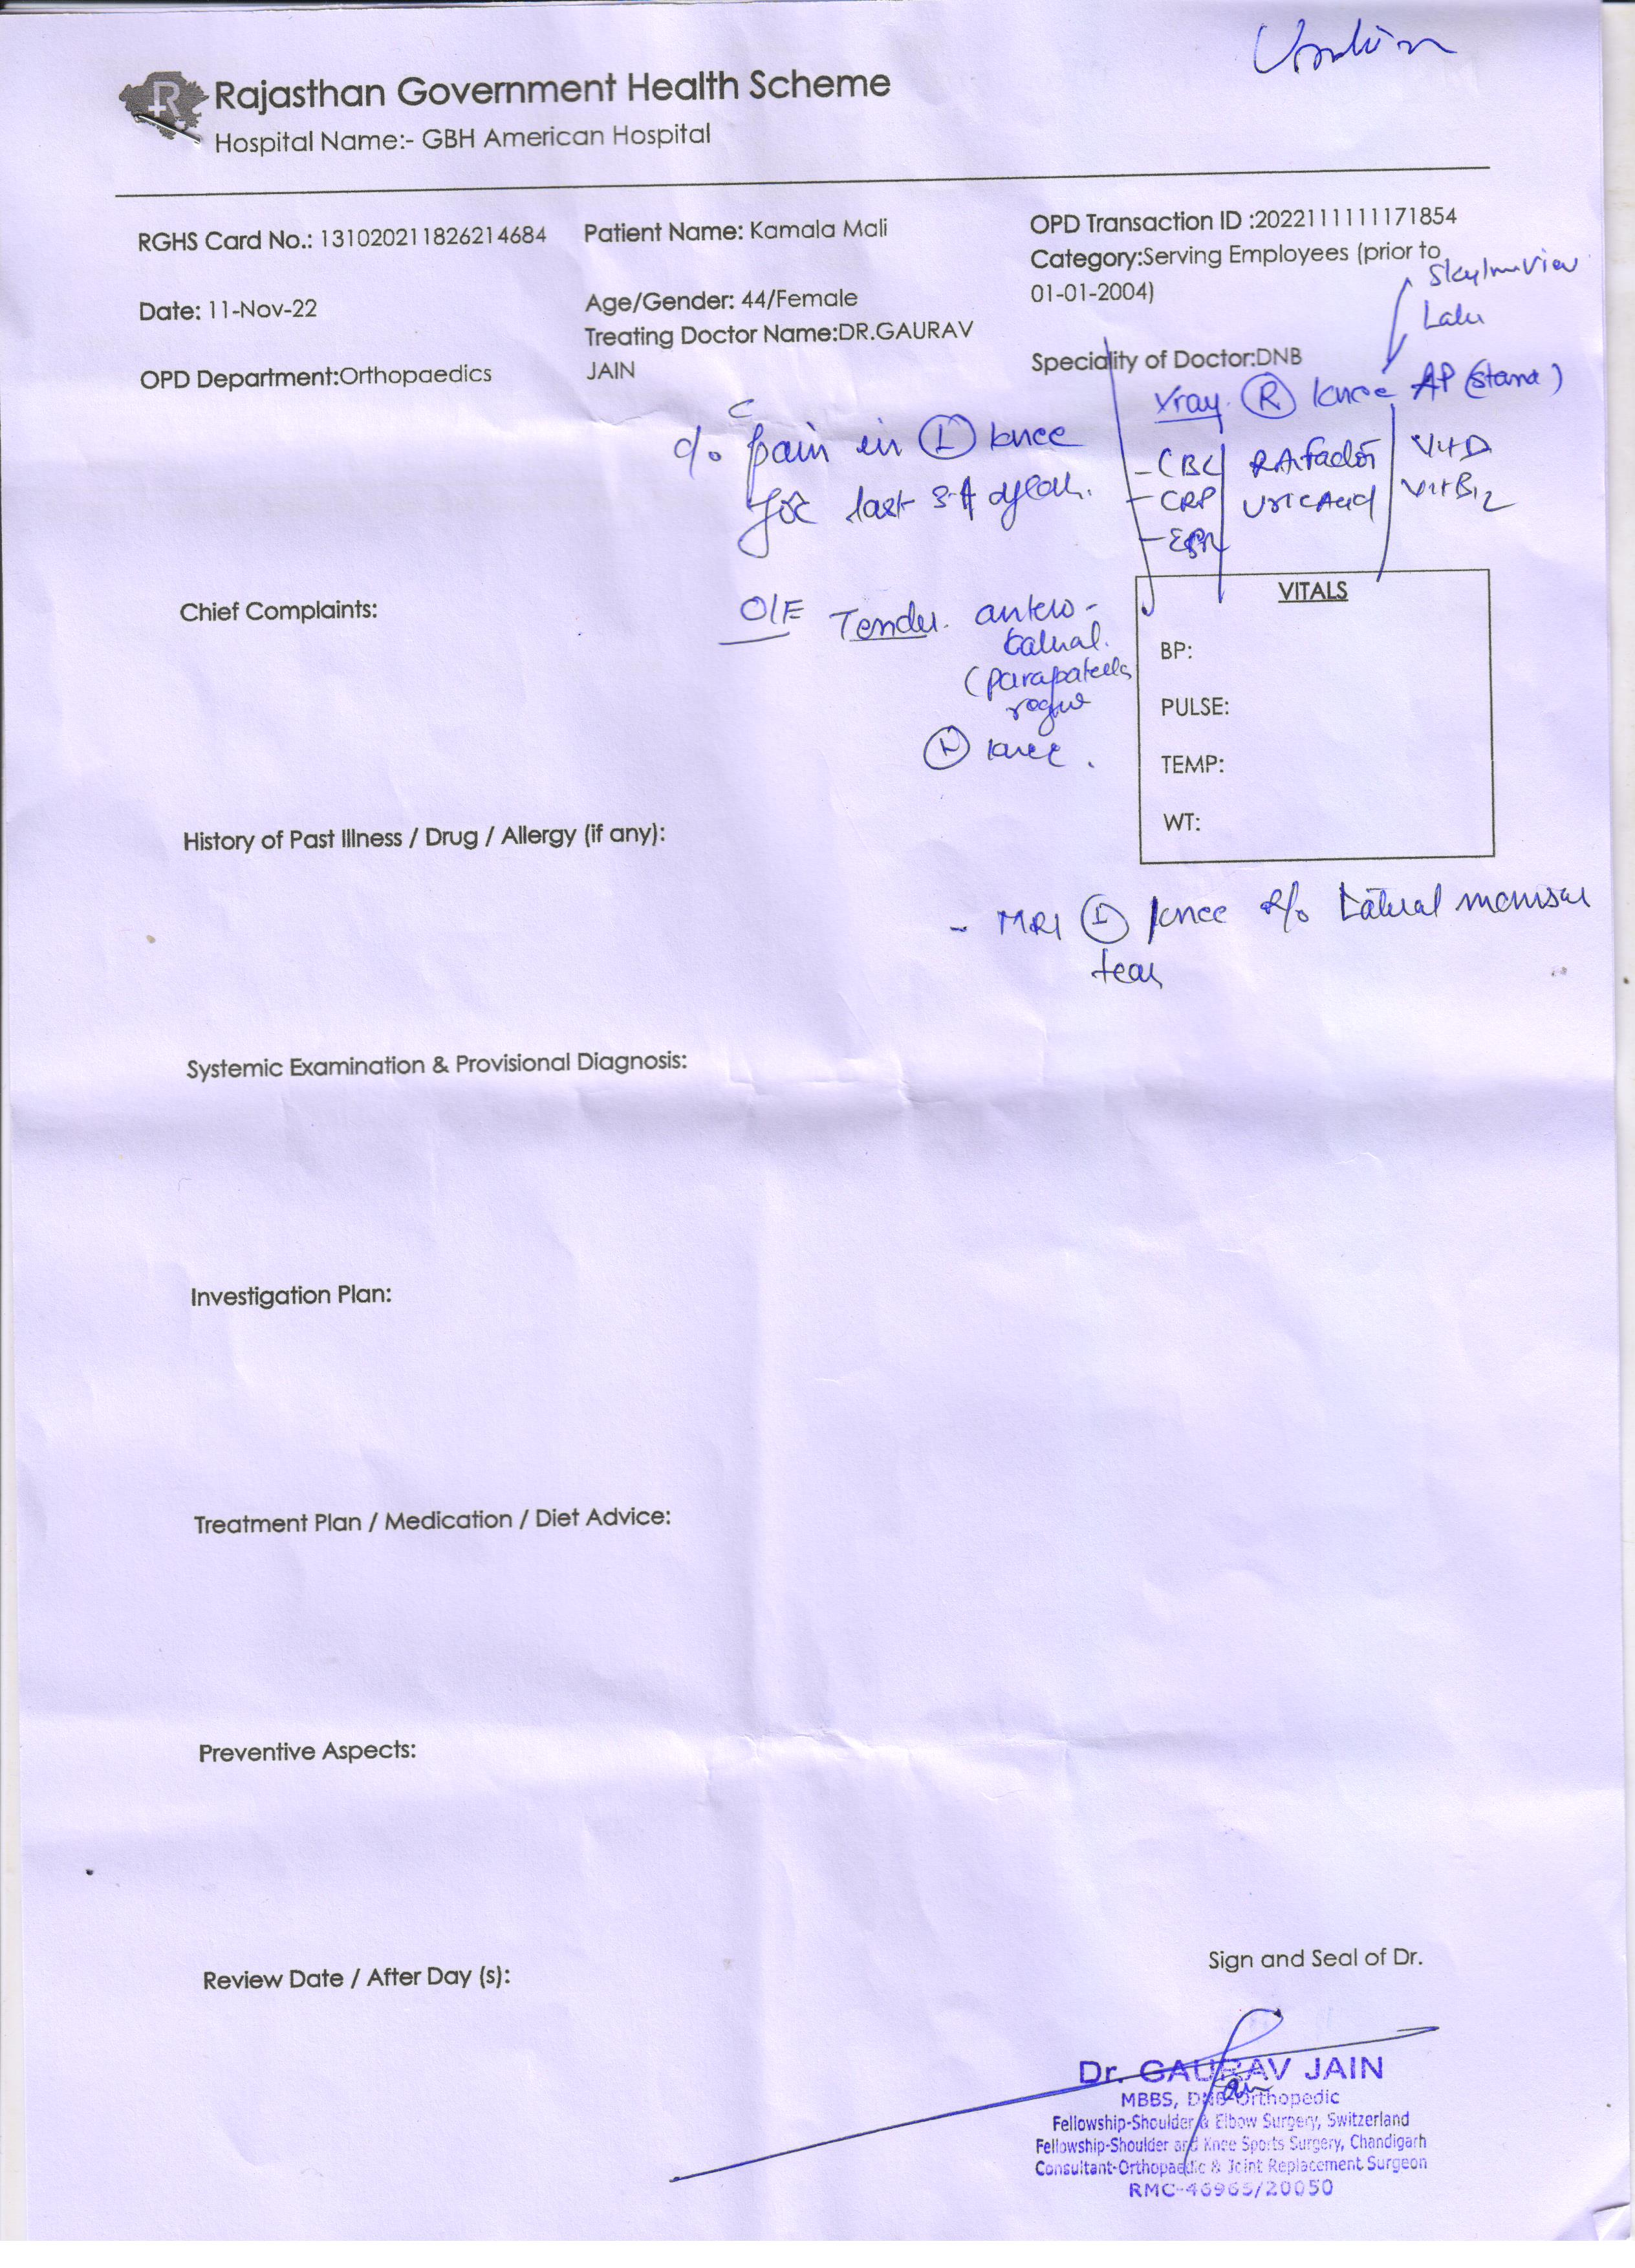 Rajasthan Government Health Scheme
Hospital Name:- GBH American Hospital
RGHS Card No.: 131020211826214684
Patient Name: Kamala Mali
OPD Transaction ID :2022111111171854
Category:Serving Employees (prior to
01-01-2004)
Date: 11-Nov-22
Age/Gender: 44/Female
Treating Doctor Name:DR.GAURAV
JAIN
OPD Department:Orthopaedics
Speciality of Doctor:DNB
Xray (R) knee AP (stand)
c/o pain in (L) knee
for last 3-4
- CBC
- CRP
- ESR
RA factor
Uric Acid
Vit D
Vit B12
Chief Complaints:
O/E Tender antero-
lateral
(parapatella
knee.
VITALS
BP:
PULSE:
TEMP:
WT:
History of Past Illness / Drug / Allergy (if any):
- MRI (L) knee Lateral
tear
Systemic Examination & Provisional Diagnosis:
Investigation Plan:
Treatment Plan / Medication / Diet Advice:
Preventive Aspects:
Review Date / After Day (s):
Sign and Seal of Dr.
Dr. GAURAV JAIN
MBBS, DNB-Orthopedic
Fellowship-Shoulder & Elbow Surgery, Switzerland
Fellowship-Shoulder and Knee Sports Surgery, Chandigarh
Consultant-Orthopaedic & Joint Replacement Surgeon
RMC-46965/20050